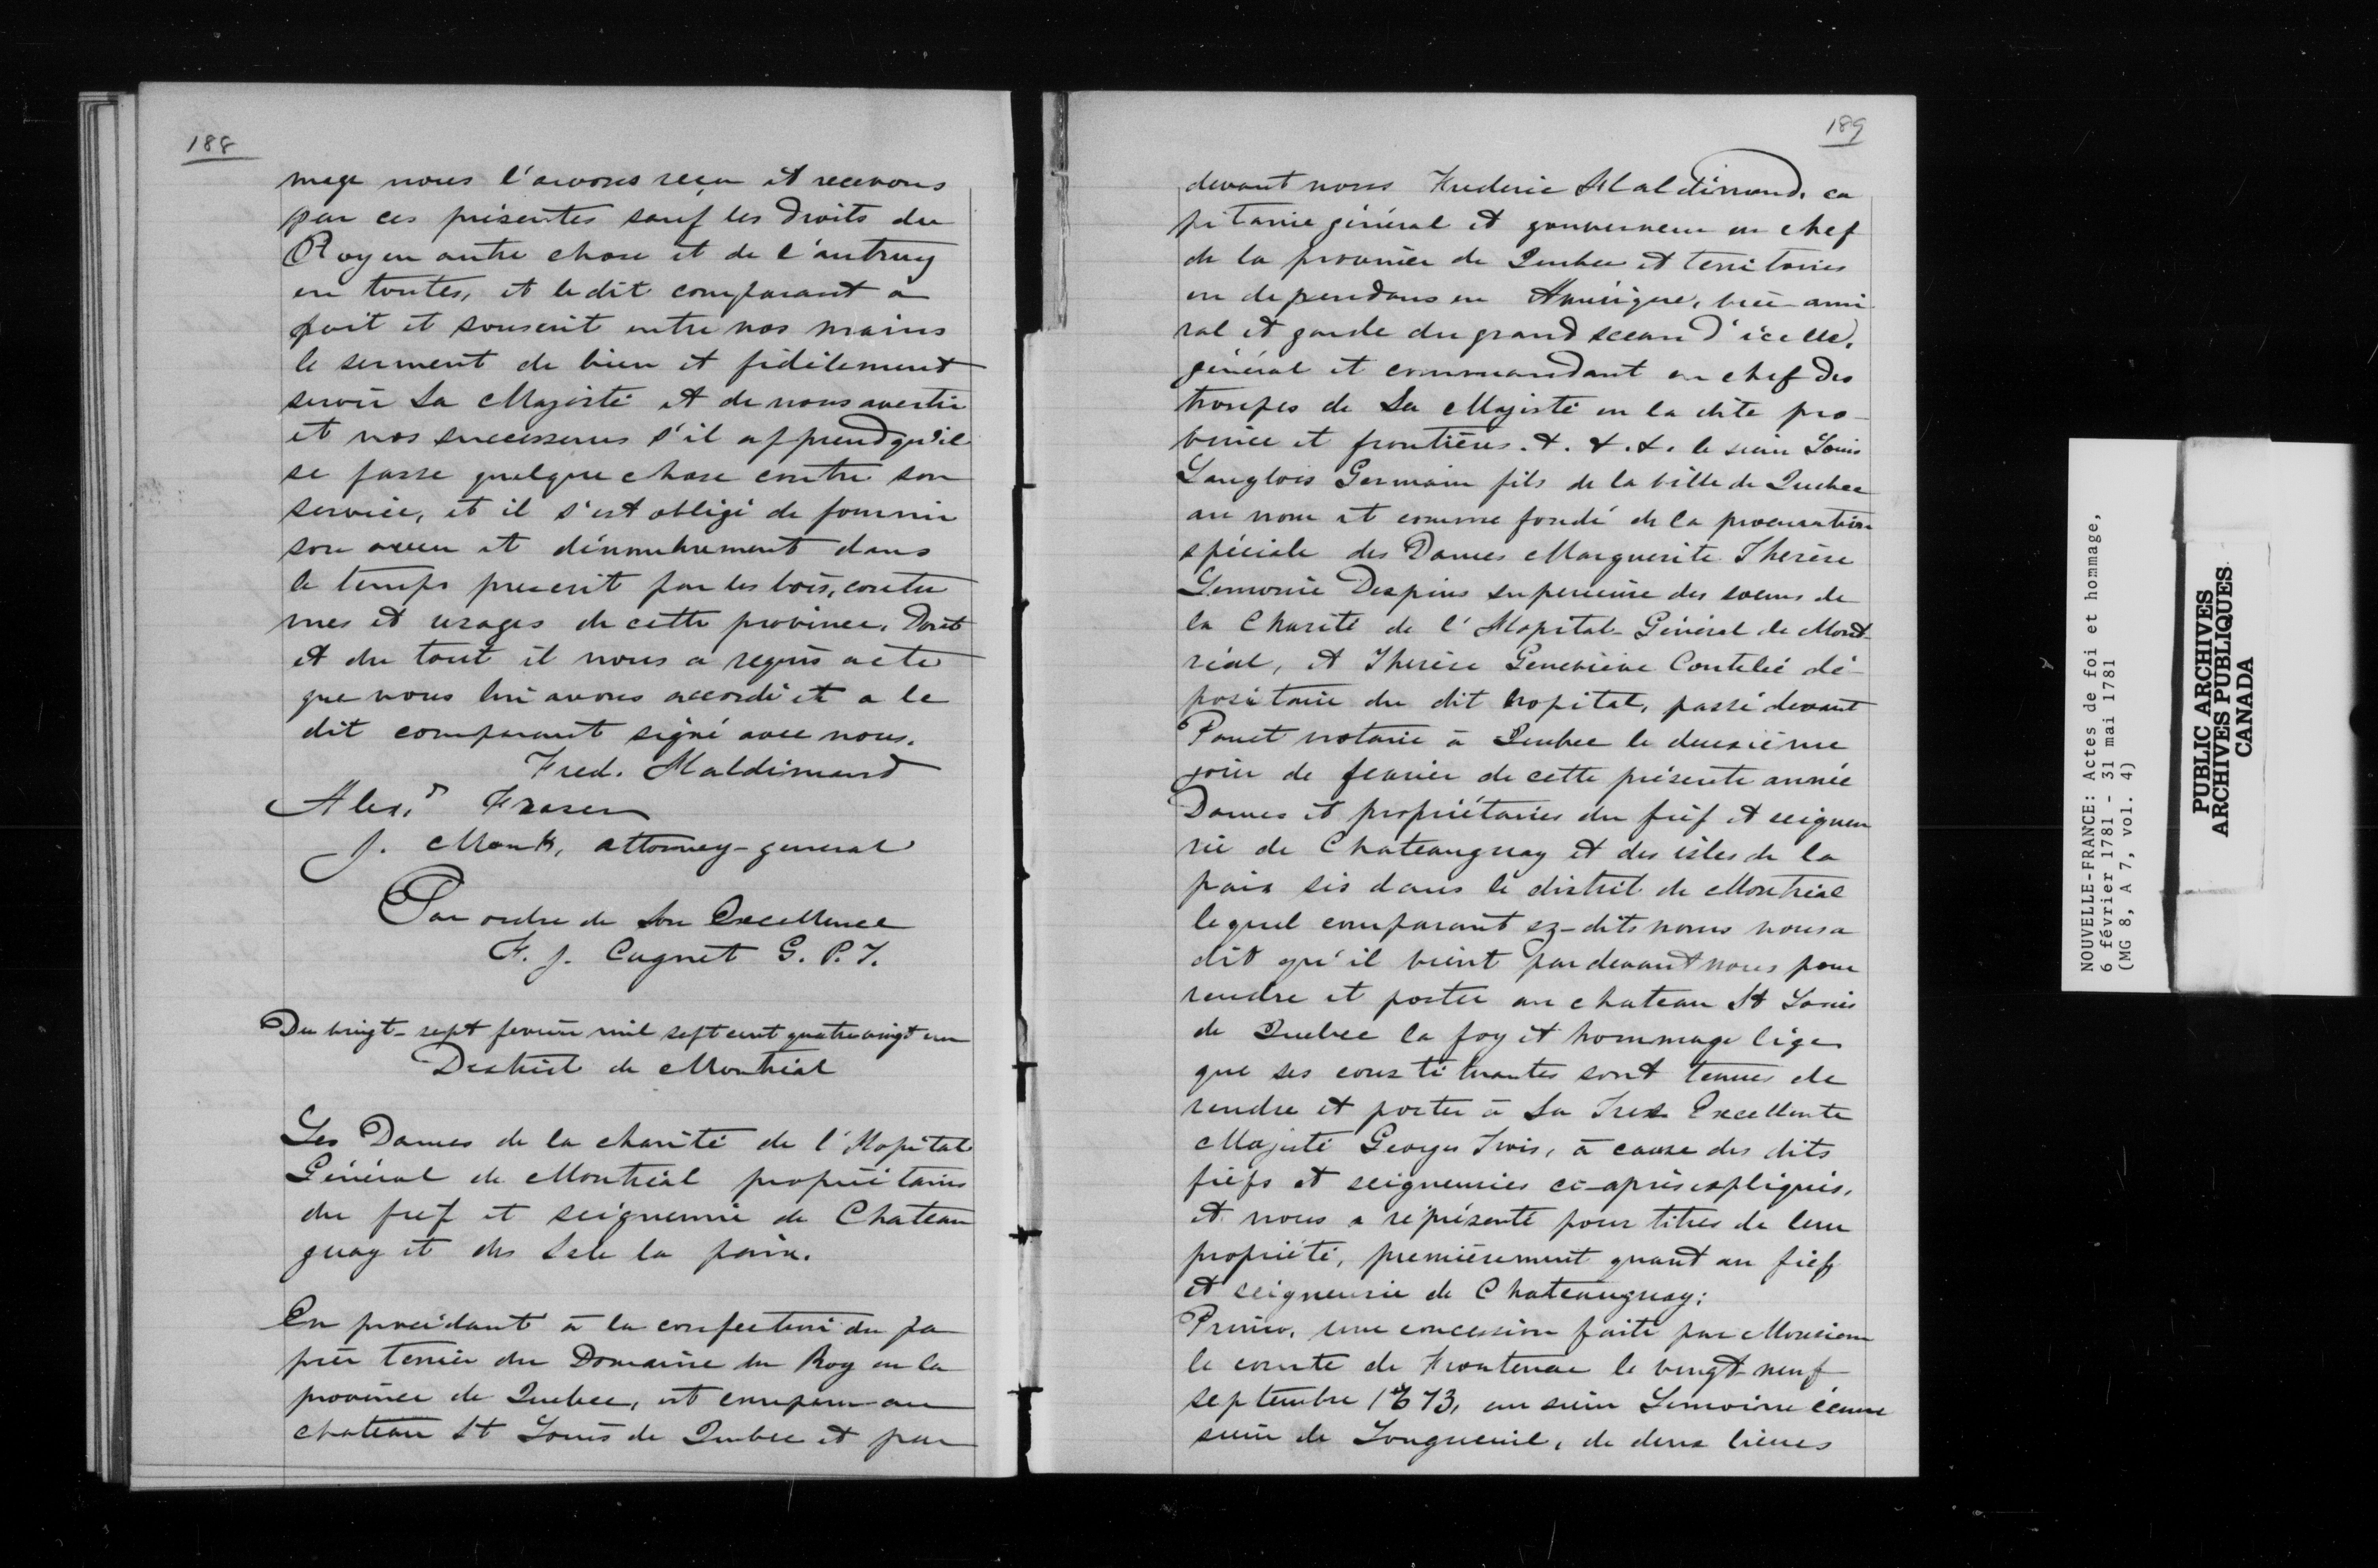 188
mage nous l'avons reçu et recevons
par ces présentes sauf les droits du
Roy en autre chose et de l'autruy
en toutes, et le dit comparant a
fait et souscrit entre nos mains
le serment de bien et fidèlement
servir Sa Majesté et de nous avertir
et nos successeurs s'il apprend qu'il
se fasse quelque chose contre son
service, et il s'est obligé de fournir
son aveu et dénombrement dans
le temps prescrit par les lois, coutu
mes et usages de cette province. Dont
et du tout il nous a requis acte
que nous lui avons accordé et a le
dit comparant signé avec nous.
Fred. Haldimand
Alex.r Fraser
J. Monk, attorney-general
Par ordre de Son Excellence
F. J. Cugnet G. P. T.
Du vingt-sept fevrier mil sept cent quatrevingt un
District de Montréal
Les Dames de la charité de l'Hopital
Général de Montréal propriétaires
du fief et seigneurie de Chateau
guay et des Isle la paix.
En procédant à la confection du pa
pier terrier du Domaine du Roy en la
province de Quebec, est comparu au
chateau St Louis de Quebec et par
189
devant nous Frederic Haldimand, ca
pitaine général et gouverneur en chef
de la province de Quebec et territoires
en dependans en Amérique, vice-ami
ral et garde du grand sceau d'icelle,
général et commandant en chef des
troupes de Sa Majesté en la dite pro-
vince et frontières. &. &. &. le sieur Louis
Langlois Germain fils de la ville de Quebec
au nom et comme fondé de la procuration
spéciale des Dames Marguerite Therèse
Lemoine Despins superieure des soeurs de
la Charité de l'Hopital-Général de Mont-
réal, et Therèse Geneviève Coutelié dé-
positaire du dit hopital, passé devant
Panet notaire à Quebec le deuxième
jour de fevrier de cette présente année
Dames et propriétaires du fief et seigneu
rie de Chateauguay et des isles de la
paix sis dans le district de Montréal
lequel comparant ez-dits noms nous a
dit qu'il vient par devant nous pour
rendre et porter au chateau St Louis
de Quebec la foy et hommage lige
que ses constituantes sont tenues de
rendre et porter à Sa Tres Excellente
Majesté Georges Trois, à cause des dits
fiefs et seigneuries ci-après expliqués,
et nous a représenté pour titres de leur
propriété, premièrement quant au fief
et seigneurie de Chateauguay:
Primo, une concession faite par Monsieur
le comte de Frontenac le vingt-neuf
septembre 1673, au sieur Lemoine écuier
sieur de Longueuil, de deux lieues
NOUVELLE-FRANCE: Actes de foi et hommage,
6 février 1781 - 31 mai 1781
(MG 8, A 7, vol. 4)
PUBLIC ARCHIVES
ARCHIVES PUBLIQUES
CANADA